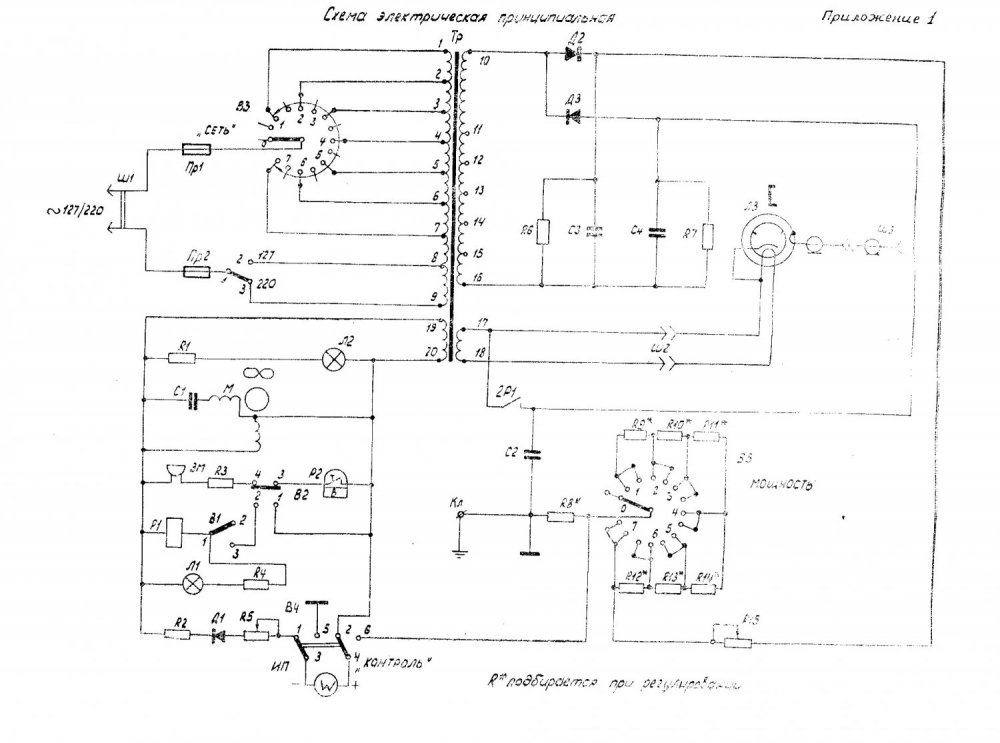 Схема электрическая принципиальная
Приложение 1
Тр
Д2
Д3
1
2
3
4
5
6
7
8
9
10
11
12
13
14
15
16
17
18
19
20
В3
„Сеть"
0
1
2
3
4
5
6
7
Пр1
Ш1
~127/220
Пр2
2
127
1
3
220
R6
С3
С4
R7
Л3
Ш3
Ш2
R1
Л2
С1
М
2Р1
С2
ЗМ
R3
4
3
2
1
В2
Р2
Т
Р1
В1
1
2
3
Л1
R4
Кл
R8*
R9*
R10*
R11*
0
1
2
3
4
5
6
7
мощность
R12*
R13*
R14*
R15
R2
Д1
R5
В4
1
5
2
6
3
4
ИП
„Контроль"
–
W
+
R* подбирается при регулировании